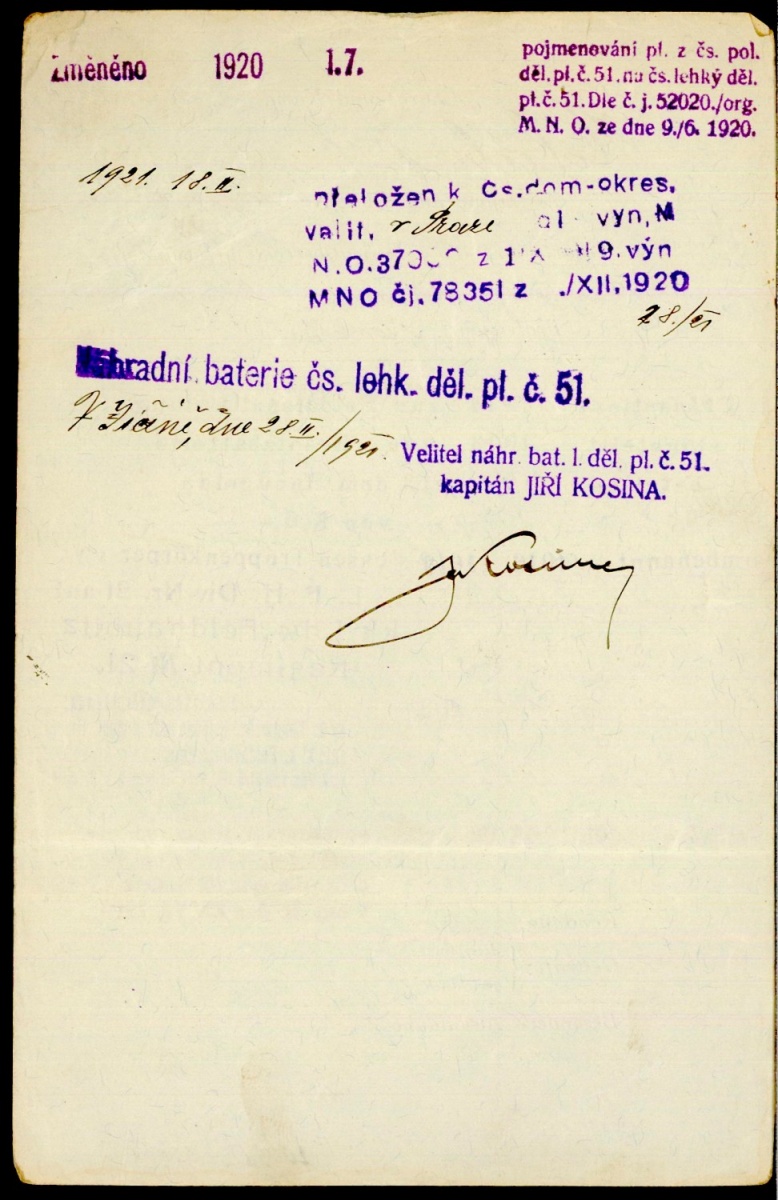 Změněno 1920 1.7.
pojmenování pl. z čs. pol.
děl. pl. č. 51. na čs. lehký děl.
pl. č. 51. Dle č. j. 52020./org.
M. N. O. ze dne 9./6. 1920.
1921. 18. II.
přeložen k čs. dom-okres,
velit. v Praze výn, M
N.O. výn
MNO čj. 78351 z ./XII, 1920
Náhradní baterie čs. lehk. děl. pl. č. 51.
V Jičíně, dne 28. II. /1921.
Velitel náhr. bat. l. děl. pl. č. 51.
kapitán JIŘÍ KOSINA.
Kosina